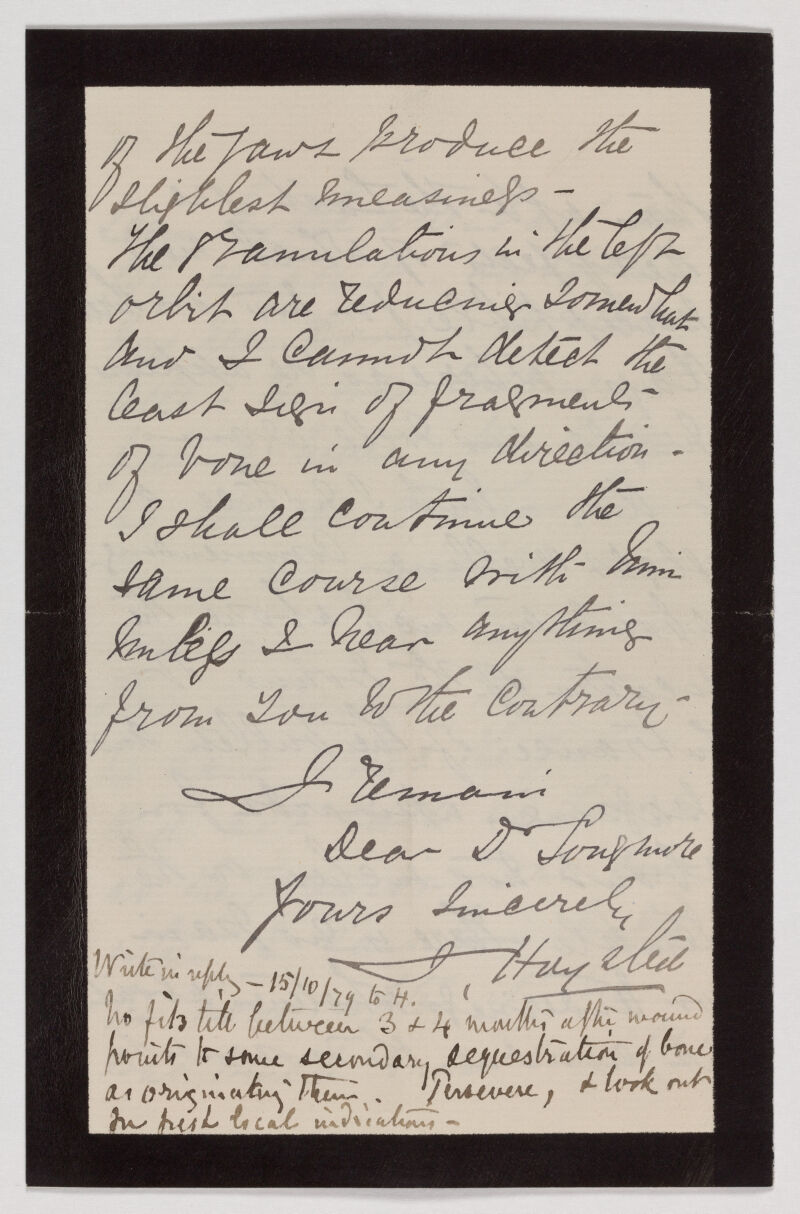 of the jaws produce the
slightest uneasiness -
The granulations in the left
orbit are reducing somewhat
and I cannot detect the
least sign of fragments
of bone in any direction -
I shall continue the
same course with him
unless I hear anything
from you to the contrary -
I remain
Dear Dr Longmore
Yours sincerely
J Haysted
Write in reply - 15/10/79 to H.
No fits till between 3 & 4 months after wound
points to some secondary sequestration of bone
as originating them. Persevere, & look out
for fresh local indications -